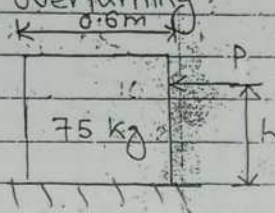 overturning
0.6m
P
75 kg
h